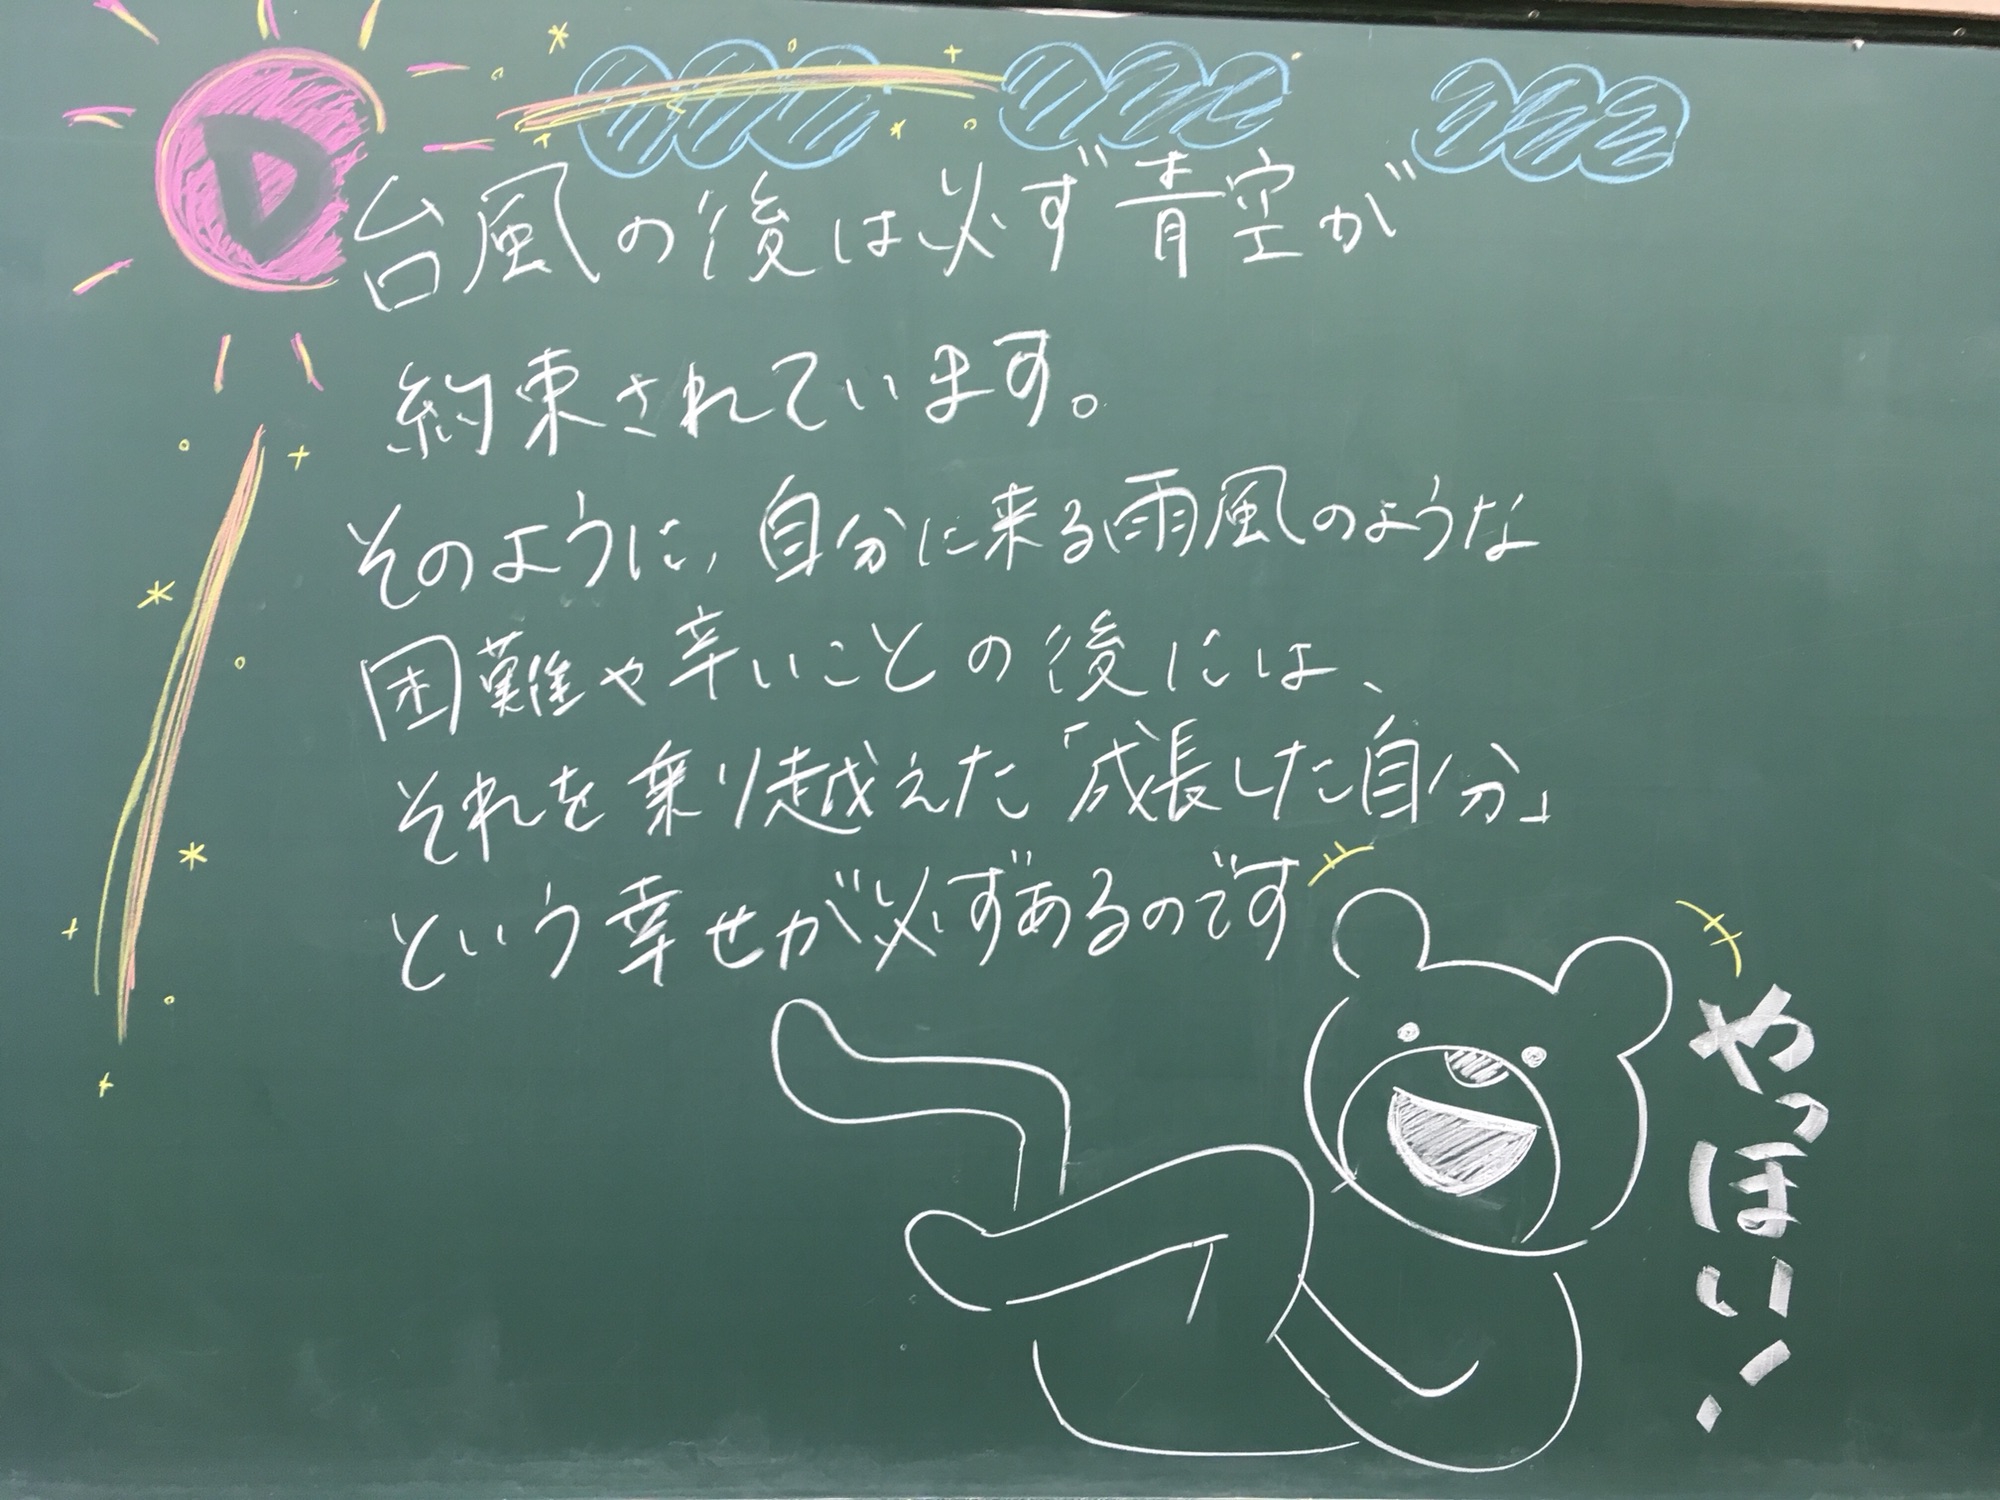 D
台風の後は必ず青空が
約束されています。
そのように、自分に来る雨風のような
困難や辛いことの後には、
それを乗り越えた「成長した自分」
という幸せが必ずあるのです
やっほい!